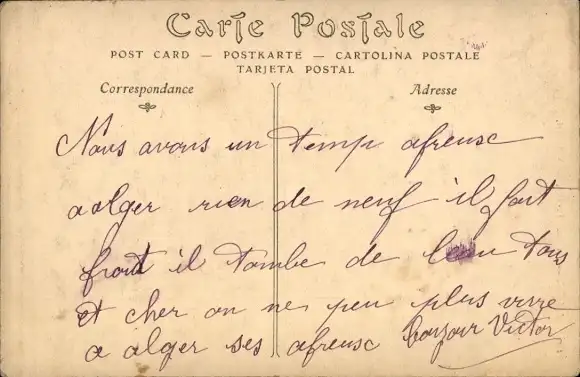 Carte Postale
POST CARD — POSTKARTE — CARTOLINA POSTALE
TARJETA POSTAL
Correspondance
Adresse
Nous avons un temp afreuse
a alger rien de neuf il fait
froid il tombe de leau tous
et cher on ne peu plus vivre
a alger ses afreuse Bonjour Victor